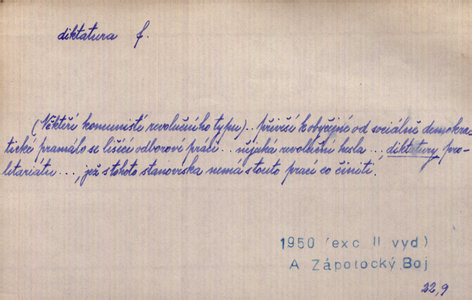 diktatura f.
(Někteří komunisté revolučního typu)... přivěsí k obyčejné od sociálně demokra-
tické pramálo se lišící odborové práci... nějaká revoluční hesla..., diktatury pro-
letariátu..., jež s tohoto stanoviska nemá s touto prací co činiti.
1950 (exc II vyd)
A Zápotocký Boj
22,9